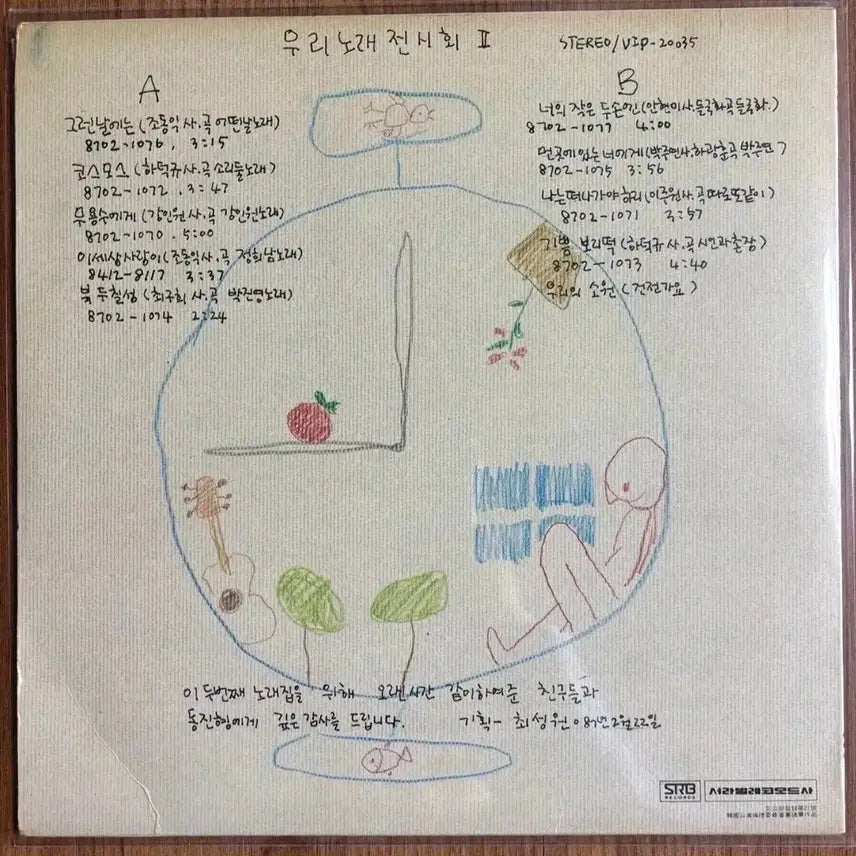 우리노래전시회 II
STEREO/VIP-20035
A
그런날에는 (조동익 사.곡 어떤날노래)
8702-1076, 3:15
코스모스 (하덕규 사.곡 소리들노래)
8702-1072. 3:47
무용수에게 (강인원 사.곡 강인원노래)
8702-1070. 5:00
이세상사랑이 (조동익사.곡 정희남노래)
8412-8117 3:37
북두칠성 (최구희 사.곡 박진영노래)
8702-1074 2:24
B
너의 작은 두손엔 (안현이사.들국화곡들국화.)
8702-1077 4:00
먼곳에있는너에게 (박주연사.하광훈곡 박주연)
8702-1075 3:56
나는떠나가야하리 (이주원사.곡 따로또같이)
8702-1071 3:57
기쁨 보리떡 (하덕규 사.곡 시인과촌장)
8702-1073 4:40
우리의 소원 (건전가요)
이 두번째 노래집을 위해 오랜시간 같이하여준 친구들과
동진형에게 깊은감사를 드립니다. 기획- 최성원 87년 2월 22일
SRB
RECORDS
서라벌레코오드사